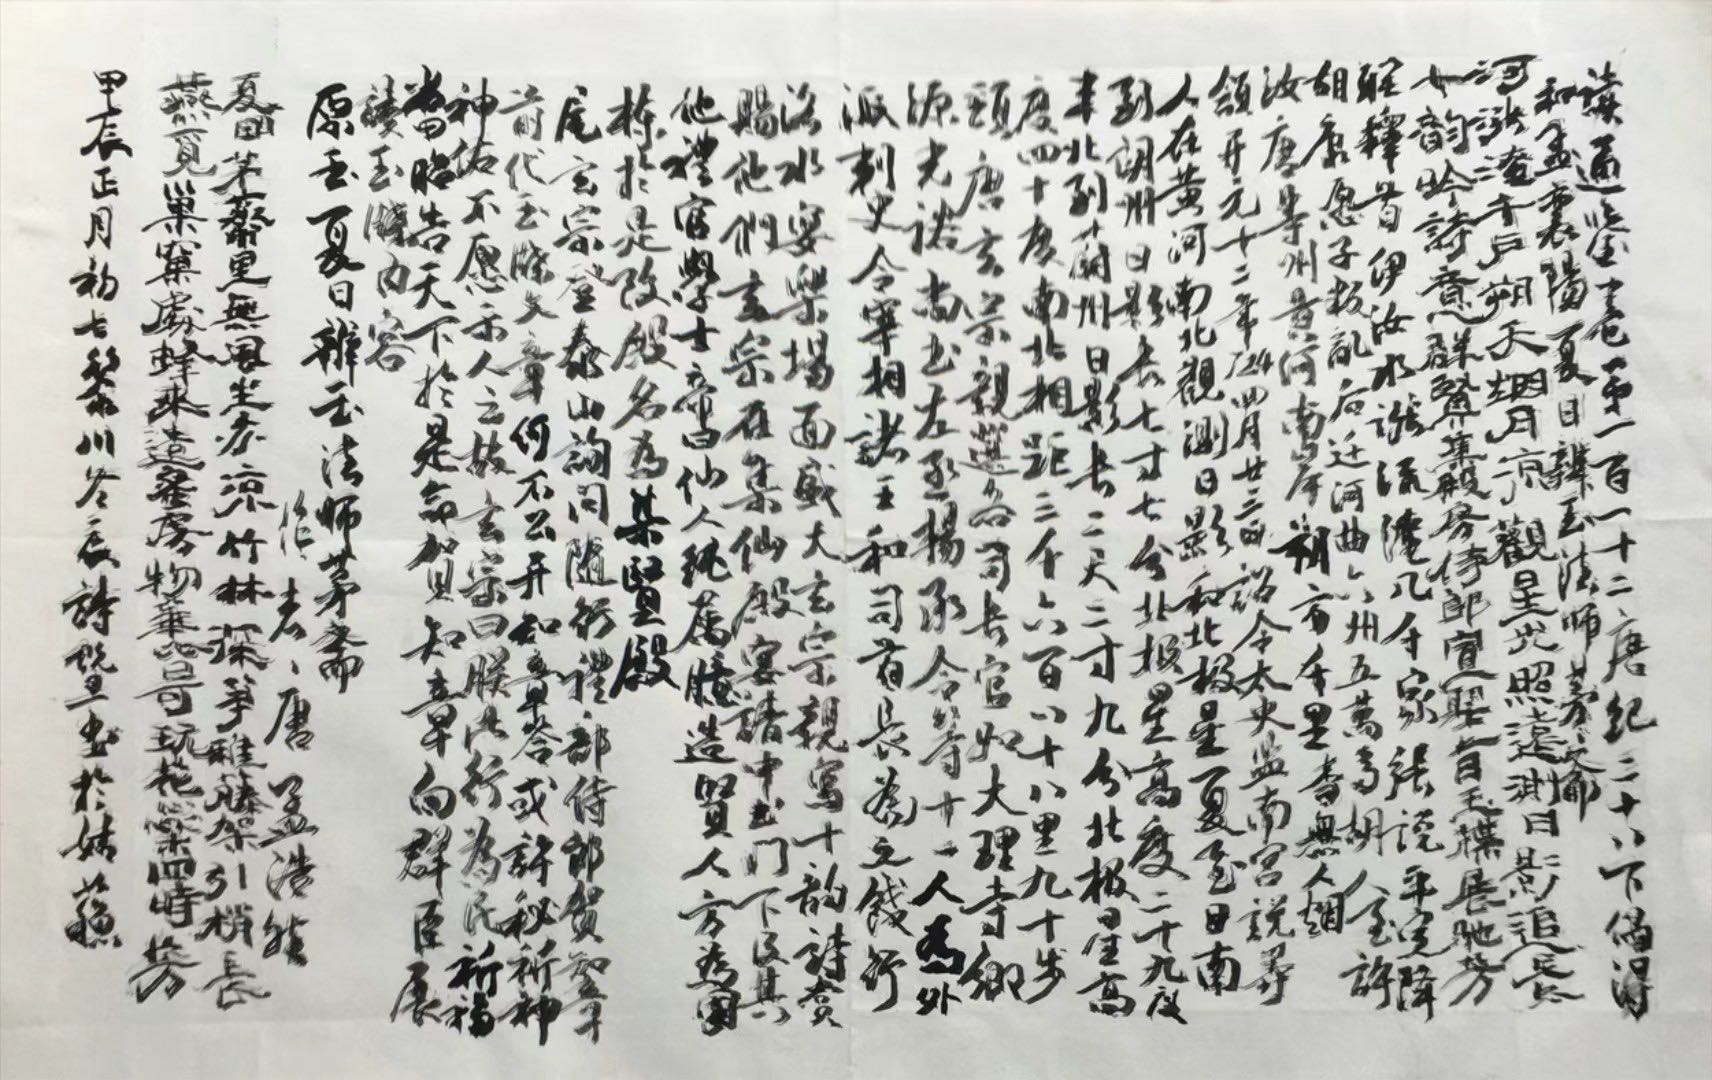 讀通鑒一卷第一百一十二唐紀二十八下偶得
和孟襄陽夏日辨玉法師茅齋
河漲淹千戶朔天烟月涼觀星光照遠測日影追長
七韵吟詩意群賢集殿房侍郎宣聖旨玉牒展馳芳
註釋昔伊汝水漲流淹几千家張說平定降
胡康愿子叛亂后迁河曲六州五萬多胡人至許
汝唐等州黃河南岸朔方千里杳無人烟
領开元十二年724四月廿三日詔令太史監南宮說等
人在黃河南北觀測日影和北极星夏至日南
到朗州日影長七寸七分北极星高度二十九度
末北到蔚州日影長二尺二寸九分北极星高
度四十度南北相距三千六百八十八里九十步
頭唐玄宗親選各司長官如大理寺卿
源光裕尚书左丞楊承令等十一人為外
派刺史令宰相諸王和司首長為之餞行
洛水宴樂場面盛大玄宗親寫十韵詩賞
賜他們玄宗在集仙殿宴請中书门下及其
他禮官學士帝曰仙人純属臆造賢人方為國
棟於是改殿名為集賢殿
尾玄宗登泰山詢问隨行禮部侍郎賀知章
前代玉牒文章何不公开知章答或許秘祈神
神佑不愿示人云故玄宗曰朕此行為民祈福
當昭告天下於是命賀知章向群臣展
讀玉牒內容
原玉夏日辨玉法師茅齋
作者、唐孟浩然
夏日茅齋里無風坐亦涼竹林深笋穉藤架引梢長
燕覓巢窠處蜂來造蜜房物華皆可玩花蕊四時芳
甲辰正月初七築川冬辰詩暨书於姑蘇